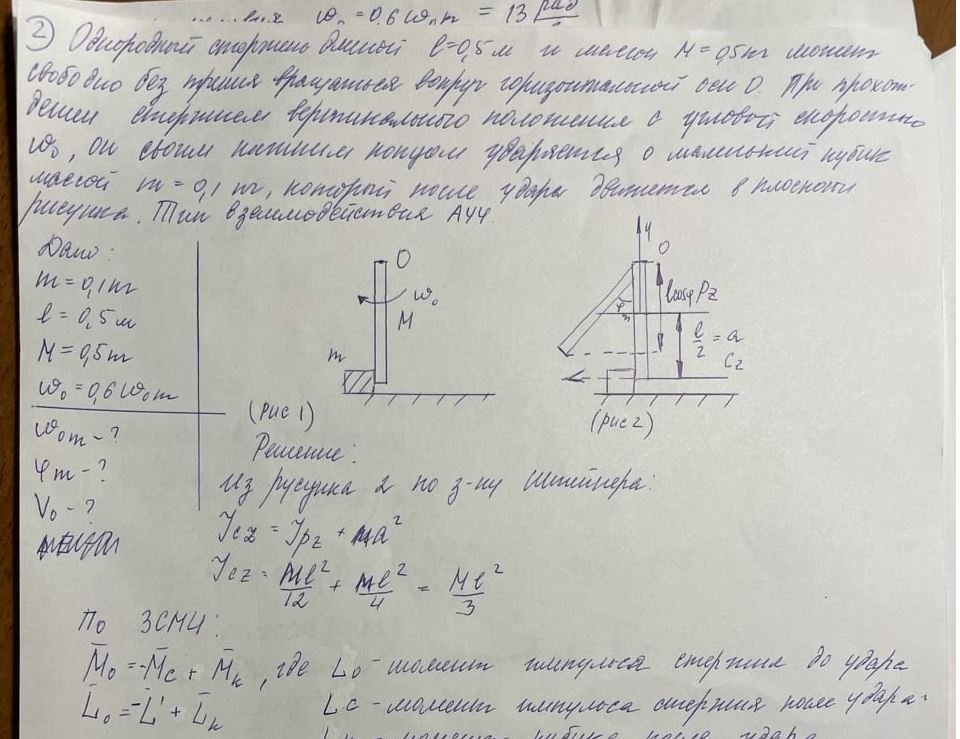 ω₀ = 0,6 ω₀m = 13 рад
2) Однородный стержень длиной l=0,5м и массой M=0,5кг может
свободно без трения вращаться вокруг горизонтальной оси О. При прохож-
дении стержнем вертикального положения с угловой скоростью
ω₀, он своим нижним концом ударяется о маленький кубик
массой m=0,1 кг, который после удара движется в плоскости
рисунка. Тип взаимодействия АУУ.
Дано:
m=0,1кг
l=0,5м
M=0,5кг
ω₀=0,6ω₀m
ω₀m-?
φm-?
V₀-?
O
ω₀
M
m
(рис 1)
y
O
φm
lcosφ
Pz
l/2 = a
Cz
(рис 2)
Решение:
Из рисунка 2 по з-ну Штейнера:
Jcz = Jpz + ma²
Jcz = Ml²/12 + Ml²/4 = Ml²/3
По ЗСМИ:
M̄₀ = -M̄c + M̄к, где L₀-момент импульса стержня до удара
L̄₀ = -L̄' + L̄к
Lc-момент импульса стержня после удара.
кубика после удара